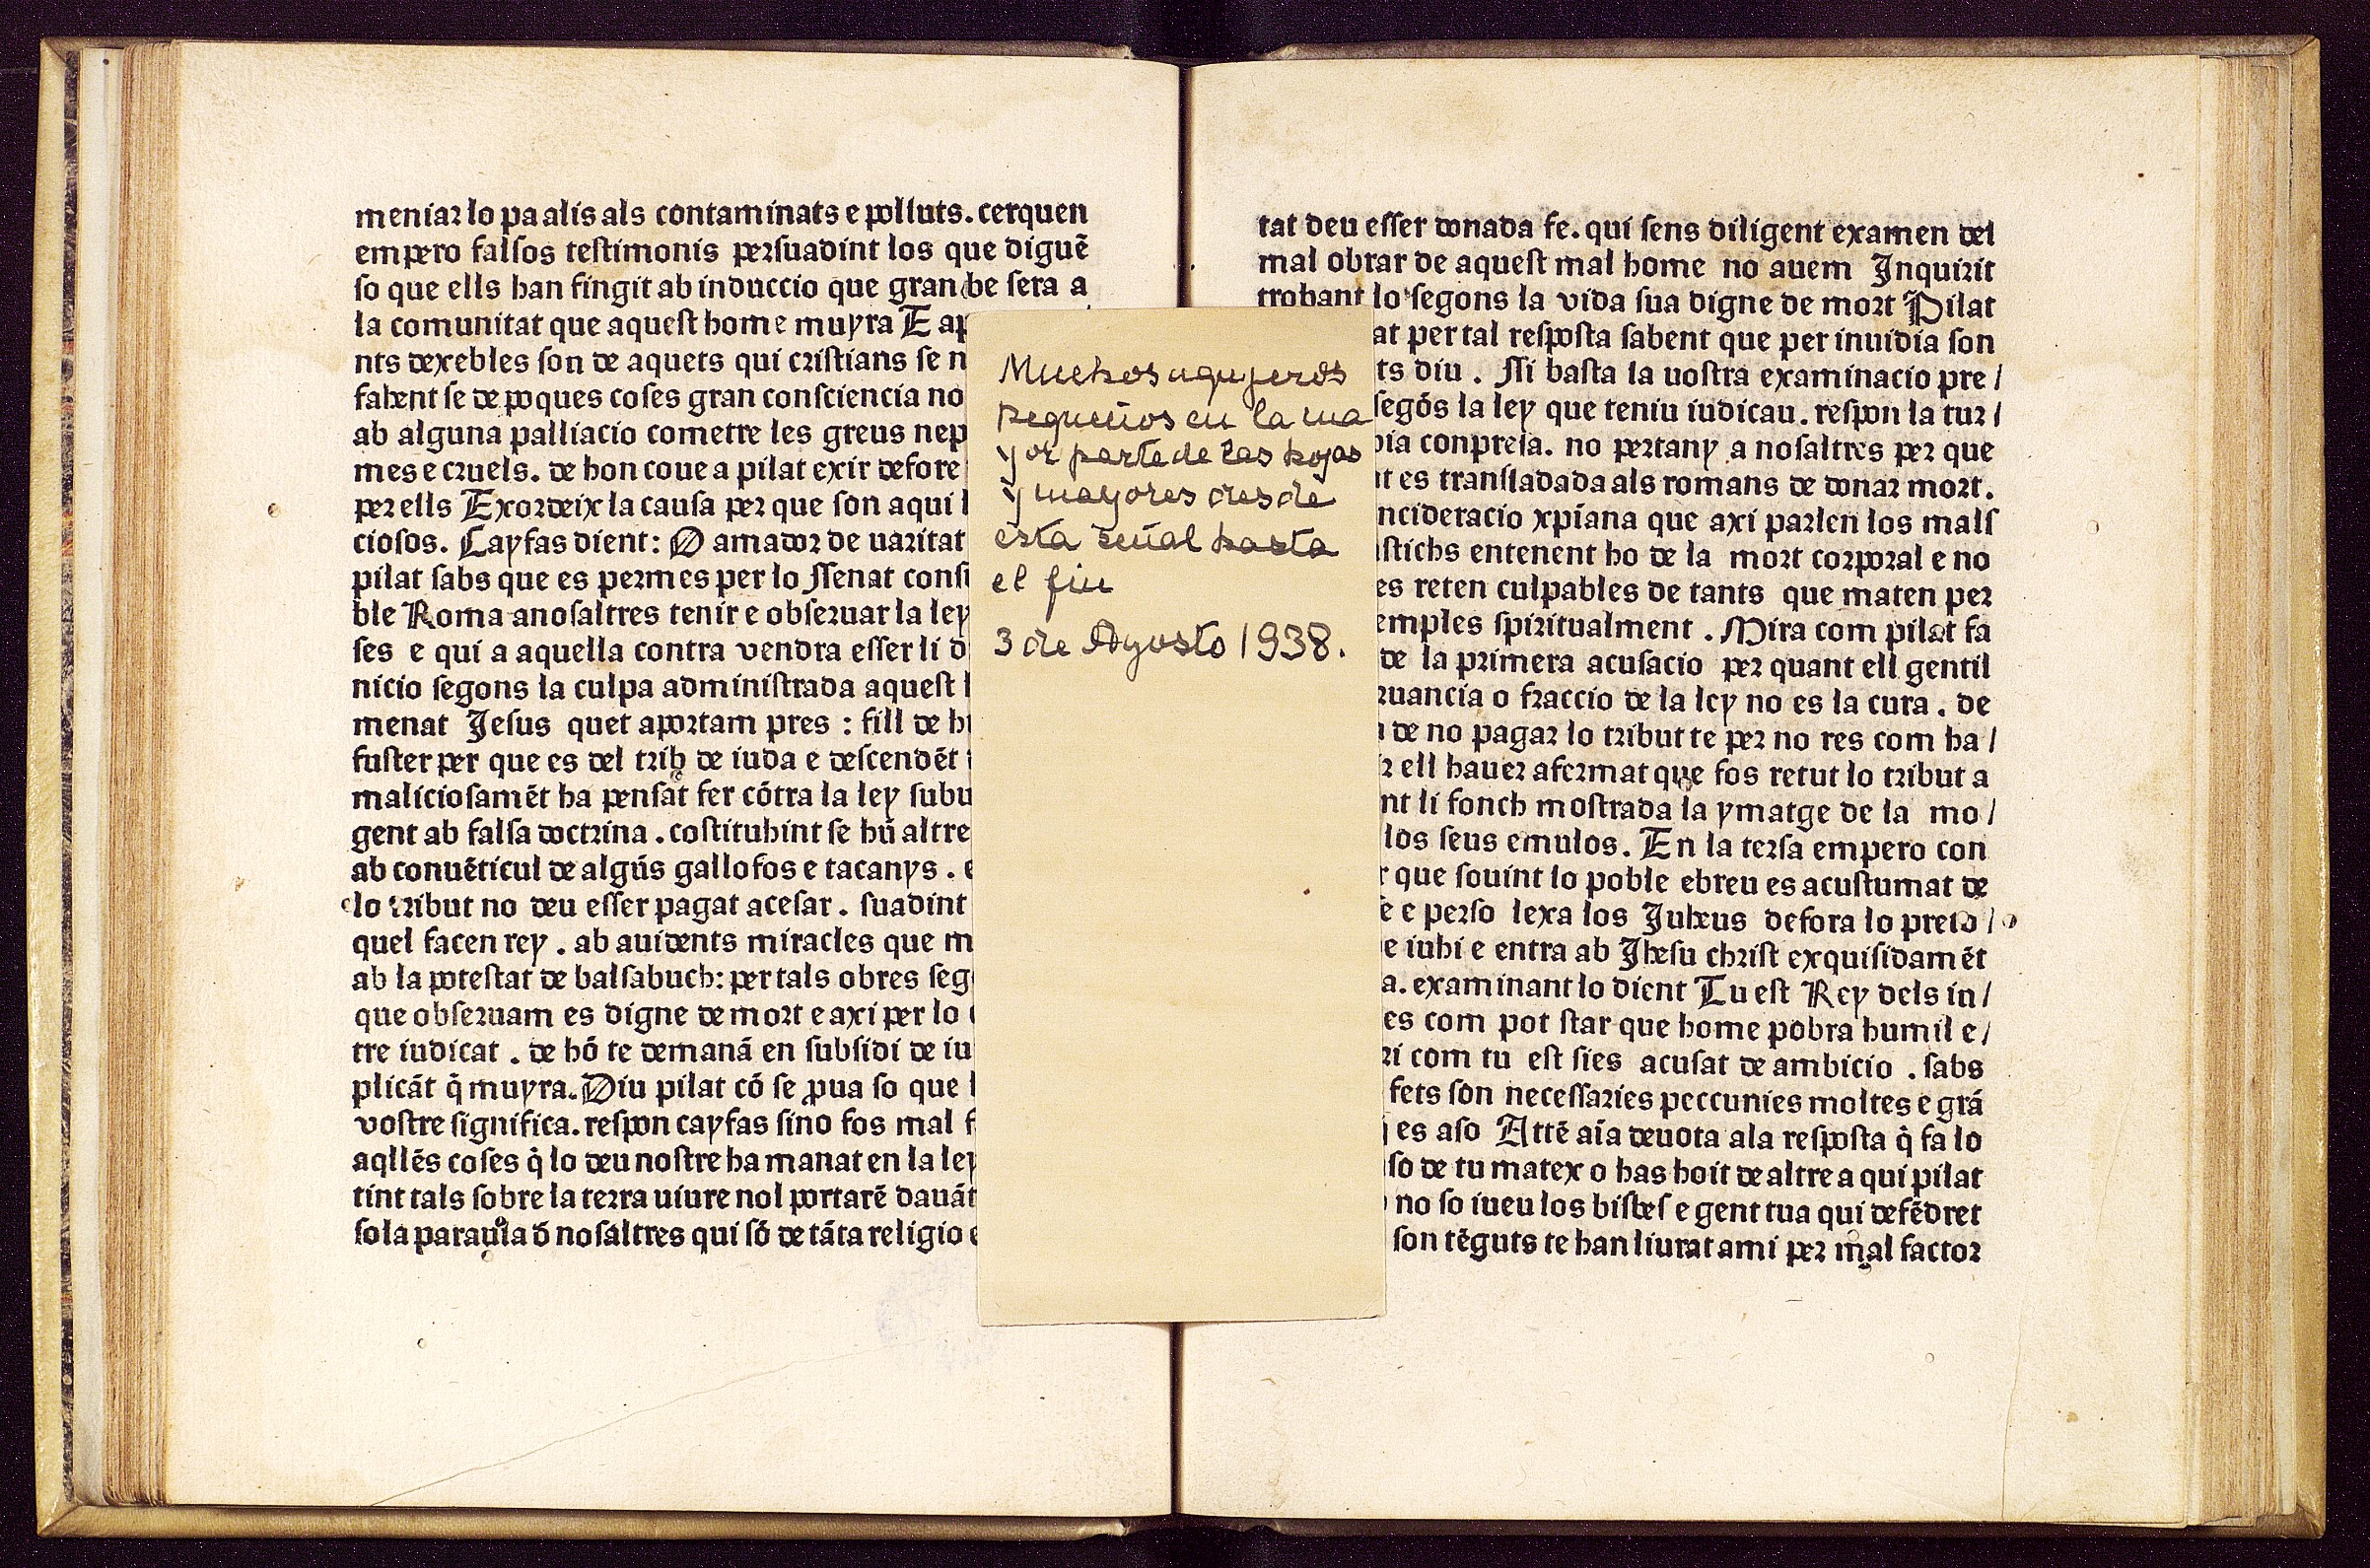 meniar lo pa alis als contaminats e polluts. cerquen
empero falsos testimonis persuadint los que diguē
so que ells han fingit ab induccio que gran be sera a
la comunitat que aquest home muyra E ap
nts dexebles son de aquets qui cristians se n
fabent se de poques coses gran consciencia no
ab alguna palliacio cometre les greus nep
mes e cruels. de hon coue a pilat exir defore
per ells Exordeix la causa per que son aqui l
ciosos. Cayfas dient: O amador de uaritat
pilat sabs que es permes per lo ssenat consi
ble Roma anosaltres tenir e obseruar la ley
ses e qui a aquella contra vendra esser li d
nicio segons la culpa administrada aquest l
menat Jesus quet aportam pres : fill de hu
fuster per que es del trib de iuda e descendēt
maliciosamēt ha pensat fer cōtra la ley subu
gent ab falsa doctrina . costituhint se hū altre
ab conuēticul de algūs gallofos e tacanys . e
lo tribut no deu esser pagat acesar . suadint
quel facen rey . ab auidents miracles que m
ab la potestat de balsabuch: per tals obres seg
que obseruam es digne de mort e axi per lo
tre iudicat . de hō te demanā en subsidi de iu
plicāt q̄ muyra. Diu pilat cō se ꝓua so que l
vostre significa. respon cayfas sino fos mal f
aqllēs coses q̄ lo deu nostre ha manat en la ley
tint tals sobre la terra uiure nol portarē dauāt
sola paraula d̄ nosaltres qui sō de tāta religio e
Muchos agujeros
pequeños en la ma
yor parte de las hojas
y mayores desde
esta señal hasta
el fin
3 de Agosto 1938.
tat deu esser donada fe. qui sens diligent examen del
mal obrar de aquest mal home no auem Inquirit
trobant lo segons la vida sua digne de mort Pilat
at per tal resposta sabent que per inuidia son
ts diu . Si basta la uostra examinacio pre/
segōs la ley que teniu iudicau. respon la tur/
bia conpresa. no pertany a nosaltres per que
t es transladada als romans de donar mort.
ncideracio xp̄iana que axi parlen los mals
stichs entenent ho de la mort corporal e no
es reten culpables de tants que maten per
emples spiritualment . Mira com pilat fa
de la primera acusacio per quant ell gentil
ruancia o fraccio de la ley no es la cura . de
de no pagar lo tribut te per no res com ha/
r ell hauer afermat que fos retut lo tribut a
nt li fonch mostrada la ymatge de la mo/
los seus emulos. En la tersa empero con
r que souint lo poble ebreu es acustumat de
e e perso lexa los Juheus defora lo preto/
e iuhi e entra ab Jhesu christ exquisidamēt
a. examinant lo dient Tu est Rey dels in/
es com pot star que home pobra humil e/
ri com tu est sies acusat de ambicio . sabs
fets son necessaries peccunies moltes e grā
es aso Attē aīa deuota ala resposta q̄ fa lo
so de tu matex o has hoit de altre a qui pilat
no so iueu los bisbes e gent tua qui defēdret
son tēguts te han liurat ami per mal factor